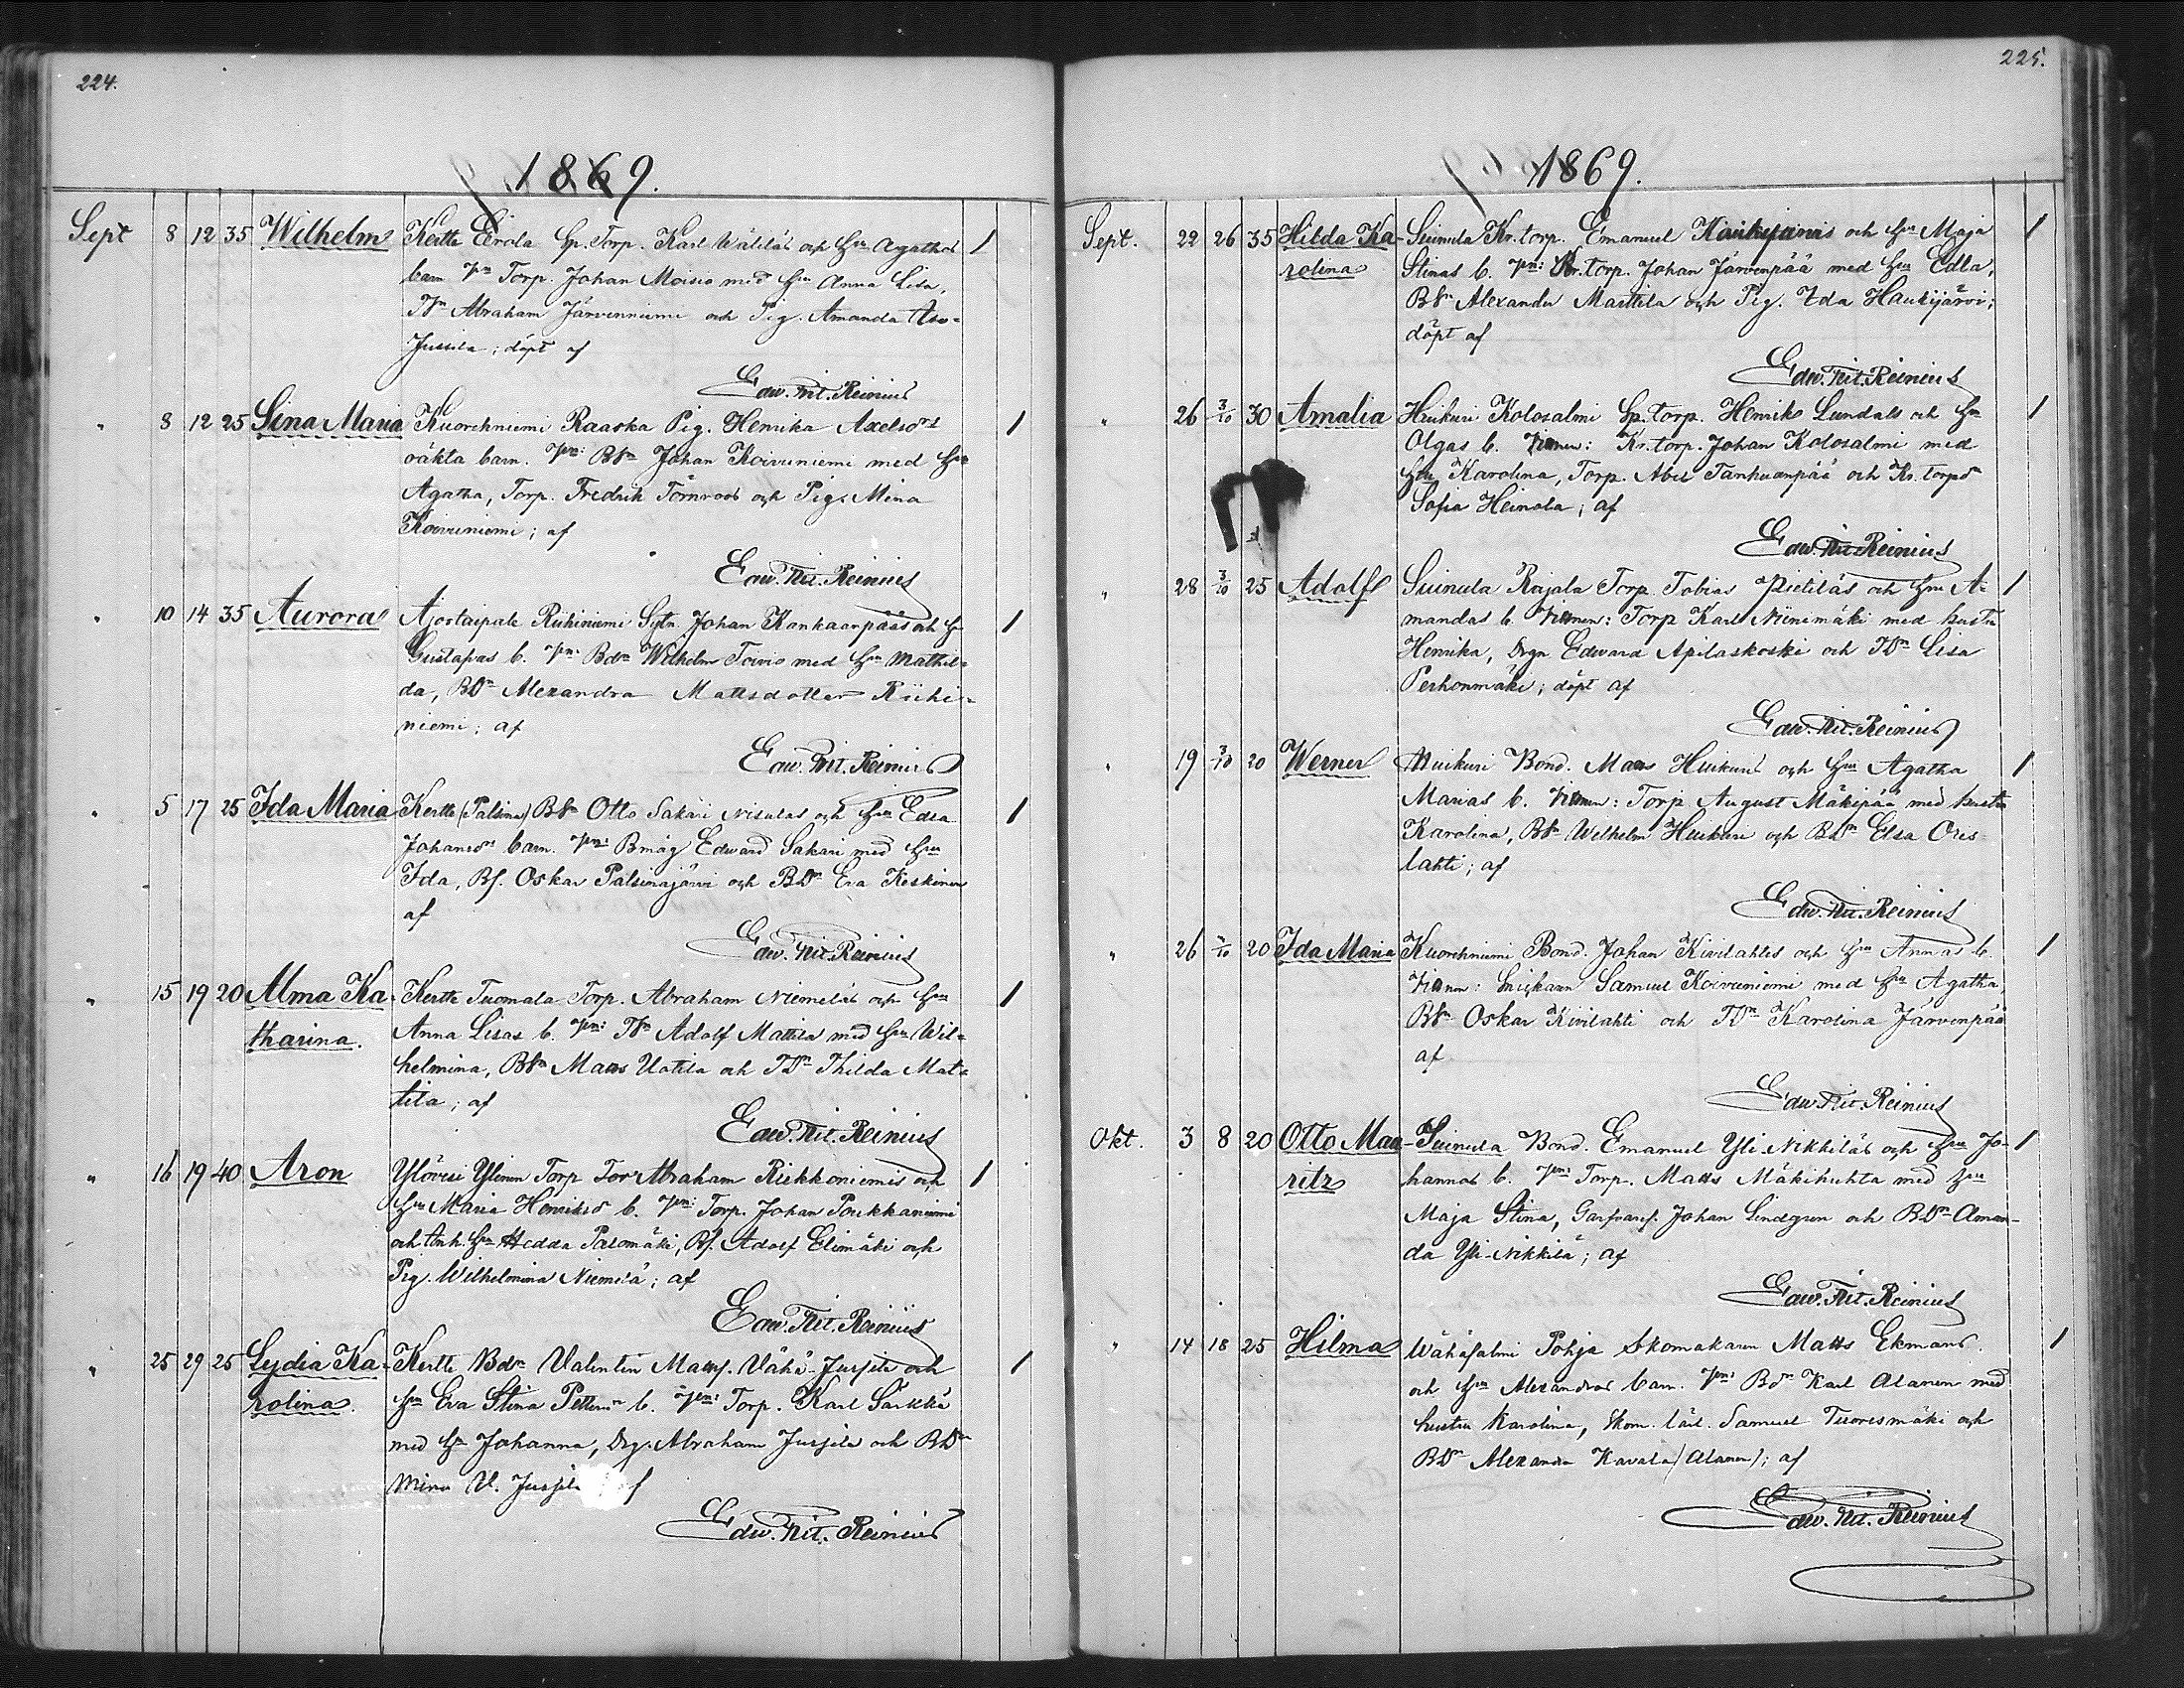 224.
1869.
Sept 8 12 35 Wilhelm Kertte Eerola Sp. Torp. Karl Wäliläs och hu Agathas
barn Torp. Johan Moisio med hu Anna Lisa,
Abraham Järvenniemi och Pig. Amanda Aso-
Jussila; döpt af
Edw. Rit. Reinius
" 8 12 25 Lina Maria Kuorehniemi Raaska Pig. Henrika Axelsdrs
oäkta barn. Johan Koivuniemi med hu
Agatha, Torp. Fredrik Törnroos och Pig. Mina
Koivuniemi; af
Edw. Rit. Reinius
" 10 14 35 Aurora Ajostaipale Riihiniemi Johan Kankaanpääs och hu
Gustafvas b. Bdn Wilhelm Toivio med hu Mathil-
da, BDr Alexandra Mattsdotter Riihi-
niemi; af
Edw. Rit. Reinius
" 5 17 25 Ida Maria Kertte (Palsina) BSn Otto Sakari Nisulas och hu Edla
Johansdrs barn. Bmåg Edward Sakari med hu
Ida, Bf. Oskar Palsinajärvi och BDr Eva Keskinen
af
Edw. Rit. Reinius
" 15 19 20 Alma Ka- Kertte Tuomala Torp. Abraham Niemeläs och hu
tharina. Anna Lisas b. TSn Adolf Mattila med hu Wil-
helmina, BSn Matts Uotila och TDr Thilda Mat-
tila; af
Edw. Rit. Reinius
" 16 19 40 Aron Ylövesi Ylinen Torp Abraham Riekkoniemis och
hu Maria Henriksd b. Torp. Johan Poukkaniemi
och Enk. hu Hedda Palomäki, Bf. Adolf Elimäki och
Pig. Wilhelmina Niemelä; af
Edw. Rit. Reinius
" 25 29 25 Lydia Ka- Kertte Bdn Valentin Mattsf. Vähä-Jussila och
rolina. hu Eva Stina b. Torp. Karl Särkkä
med hu Johanna, Drg. Abraham Jussila och BDr
Mina V. Jussila af
Edw. Rit. Reinius
225.
1869.
Sept. 22 26 35 Hilda Ka- Suinula Kr. torp. Emanuel Haukijärvis och hu Maja
rolina Stinas b. Kr. torp. Johan Järvenpää med hu Edla,
BSn Alexander Marttila och Pig. Ida Haukijärvi;
döpt af
Edw. Rit. Reinius
" 26 3/10 30 Amalia Huikuri Kolosalmi Sp. torp. Henrik Lundals och hu
Olgas b. Vittnen: Kr. torp. Johan Kolosalmi med
hu Karolina, Torp. Abel Tanhuanpää och Kr. torpd
Sofia Heinola; af
Edw. Rit. Reinius
" 28 3/10 25 Adolf Suinula Rajala Torp Tobias Pietiläs och hu A-
mandas b. Vittnen: Torp Karl Niinimäki med hustru
Henrika, Drgn Edward Apilaskoski och TDr Lisa
Perhonmäki; döpt af
Edw. Rit. Reinius
" 19 3/10 20 Werner Huikuri Bond. Matts Huikuris och hu Agatha
Marias b. Vittnen: Torp August Mäkipää med hustru
Karolina, BSn Wilhelm Huikuri och BDr Elsa Ores-
lahti; af
Edw. Rit. Reinius
" 26 20 Ida Maria Kuorehniemi Bond. Johan Kivilahtis och hu Annas b.
Vittnen: Snickaren Samuel Koivuniemi med hu Agatha,
BSn Oskar Kivilahti och TDr Karolina Järvenpää
af
Edw. Rit. Reinius
Okt. 3 8 20 Otto Mau- Suinula Bond. Emanuel Yli-Nikkiläs och hu Jo-
ritz hannas b. Torp. Matts Mäkihuhta med hu
Maja Stina, Johan Lindgren och BDr Aman-
da Yli-Nikkilä; af
Edw. Rit. Reinius
" 14 18 25 Hilma Wähäsalmi Pohja Skomakaren Matts Ekmans
och hu Alexandras barn. BSn Karl Alanen med
hustru Karolina, Skom. lärl. Samuel Tuoresmäki och
BDr Alexandra Kavala (Alanen); af
Edw. Rit. Reinius